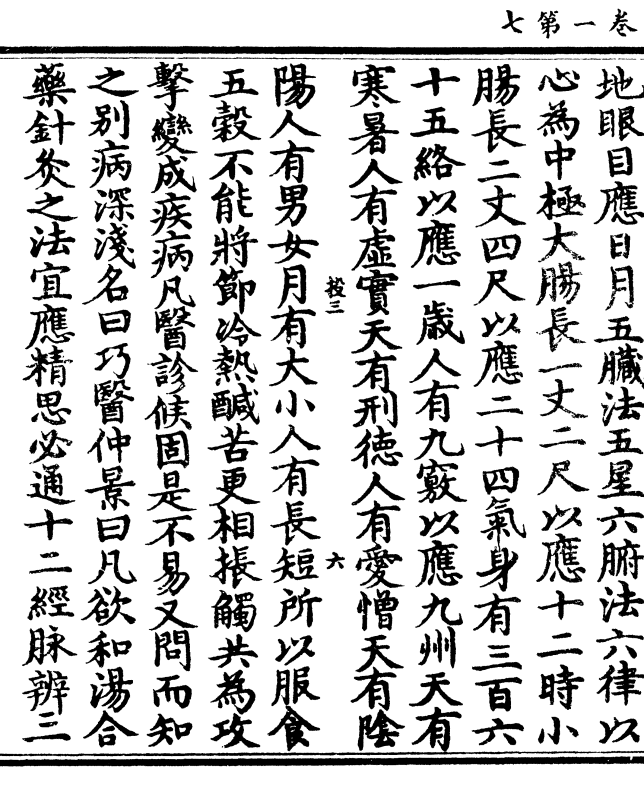 卷一第七
地眼目應日月五臟法五星六腑法六律以
心為中極大腸長一丈二尺以應十二時小
腸長二丈四尺以應二十四氣身有三百六
十五絡以應一歲人有九竅以應九州天有
寒暑人有虛實天有刑德人有愛憎天有陰
陽人有男女月有大小人有長短所以服食
五穀不能將節冷熱醎苦更相掁觸共為攻
擊變成疾病凡醫診候固是不易又問而知
之別病深淺名曰巧醫仲景曰凡欲和湯合
藥針灸之法宜應精思必通十二經脉辨三